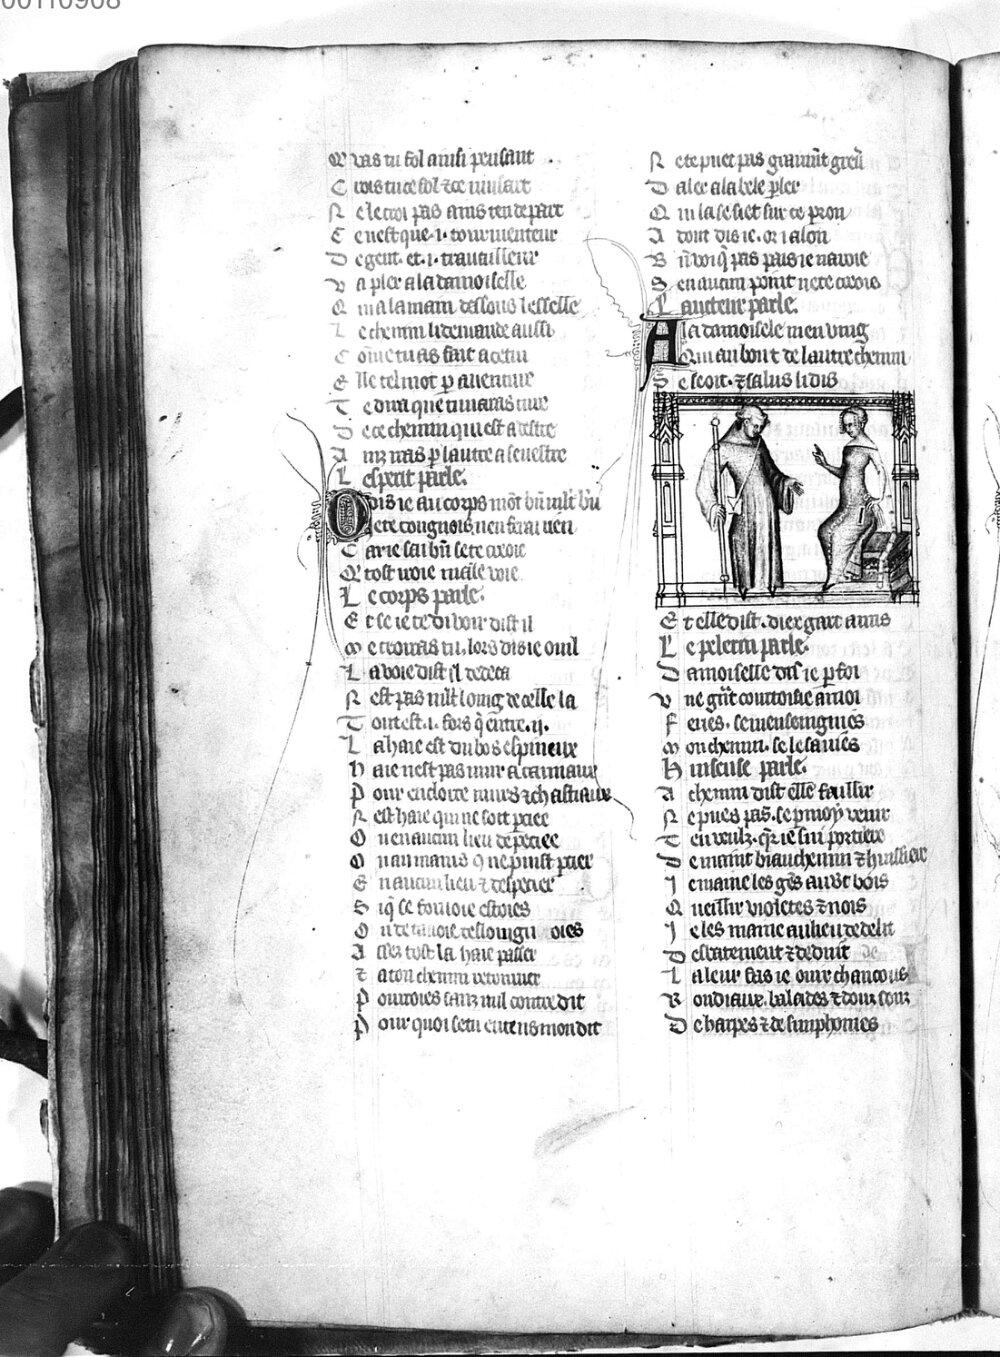 00110908
Q vas tu fol ainsi pensant
C rois tu ce fol ⁊ ce
N e le croi pas ains ten depart
C e nest que .i. tourmenteur
D e gent. et .i. travailleur
V a pler a la damoiselle
Q ui a la main dessous lesselle
L e chemin li demande aussi
C ōme tu as fait a cetui
E lle tel mot p aventure
T e dira que tu
D e ce chemin qui est a destre
A iras p lautre a senestre
L esperit parle.
O dis ie au corps mōt
l ete congnois nen ferai rien
C ar ie sai bn̄ se te croie
Q tost voie
L e corps parle.
E t se ie te di voir dist il
M e croiras tu. lors dis ie oil
L a voie dist il de deca
N est pas mlt loing de celle la
T out est .i. fors q̄ entre .ii.
L a haie est du bos espineux
H aie nest pas mur a carniaux
P our enclorre murs ⁊ chastiaux
N est haie qui ne soit percee
O u en aucun lieu depecee
O u au mains q ne puist pcer
E n aucun lieu ⁊ despecer
S iq̄ se
O u de ta voie
A ssez tost la haie passer
⁊ a ton chemin retourner
P ourroies sans nul contredit
P our quoi se tu entens mon dit
N e te puet pas granm̄t grev̄
D aler a la bele pler
Q ui la se siet sur ce pron
A dont dis ie. or i alon
B n̄ voi q̄ pas puis ie navoie
S en aucun point ne te creoie
L aucteur parle.
A la damoisele men ving
Q ui au bout de lautre chemin
S e seoit. ⁊ salus li dis
E t elle dist. diex gart amis
L e pelerin parle.
D amoiselle dis ie p foi
V ne grāt courtoisie a moi
F eries. se menseingnies
M on chemin. se le savies
H uiseuse parle.
A chemin dist elle faillir
N e pues pas. se p moȳ venir
T en veulz. qr̄ ie sui portiere
D e maint biau chemin ⁊ huissiere
I e maine les gēs au vt bois
Q ueillir violetes ⁊ nois
I e les maine au lieu de delit
D esbatement ⁊ de deduit
L a leur fas ie ouir chancons
R ondiaux. balades ⁊ douz sons
D e harpes ⁊ de simphonies